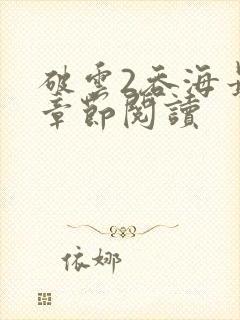 破雲2吞海最
章節閱讀
依娜